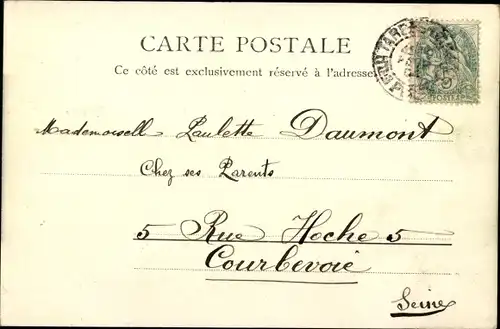 CARTE POSTALE
Ce côté est exclusivement réservé à l'adresse
Mademoiselle Paulette Daumont
Chez ses Parents
5 Rue Hoche 5
Courbevoie
Seine